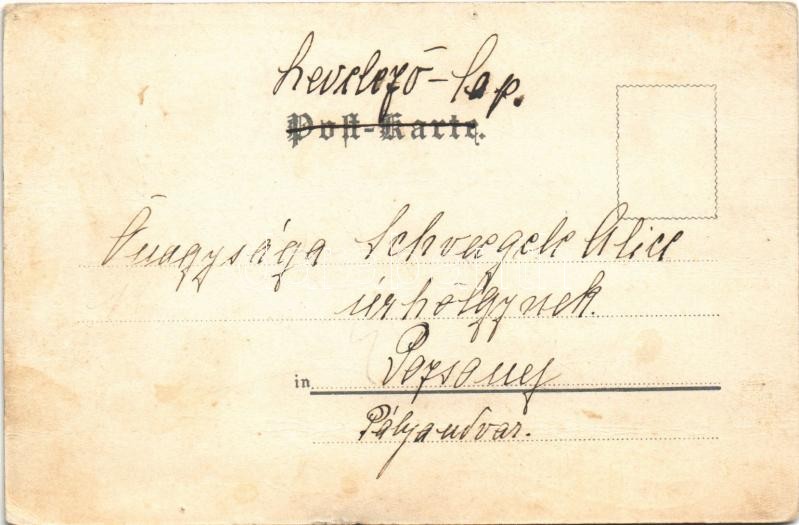 levelező-lap.
Post-Karte.
Őnagysága Schvegele Alice
úrhölgynek.
in Pozsony
Pályaudvar.